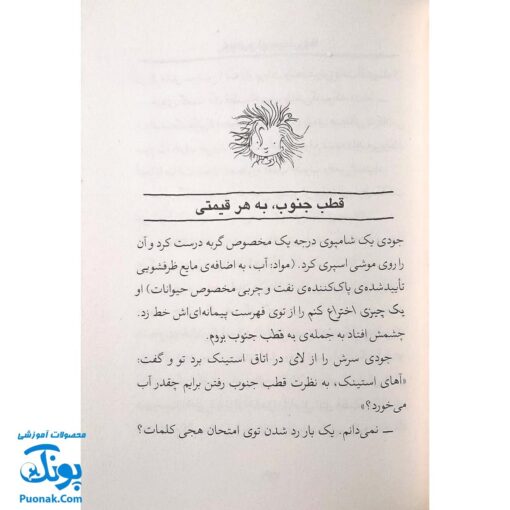 قطب جنوب، به هر قیمتی
جودی یک شامپوی درجه یک مخصوص گربه درست کرد و آن
را روی موشی اسپری کرد. (مواد: آب، به اضافه‌ی مایع ظرفشویی
تأییدشده‌ی پاک‌کننده‌ی نفت و چربی مخصوص حیوانات) او
یک چیزی اختراع کنم را از توی فهرست پیمانه‌ای‌اش خط زد.
چشمش افتاد به جمله‌ی به قطب جنوب بروم.
جودی سرش را از لای در اتاق استینک برد تو و گفت:
«آهای استینک، به نظرت قطب جنوب رفتن برایم چقدر آب
می‌خورد؟»
ـ نمی‌دانم. یک بار رد شدن توی امتحان هجی کلمات؟
محصولات آموزشی
پونک
Puonak.Com